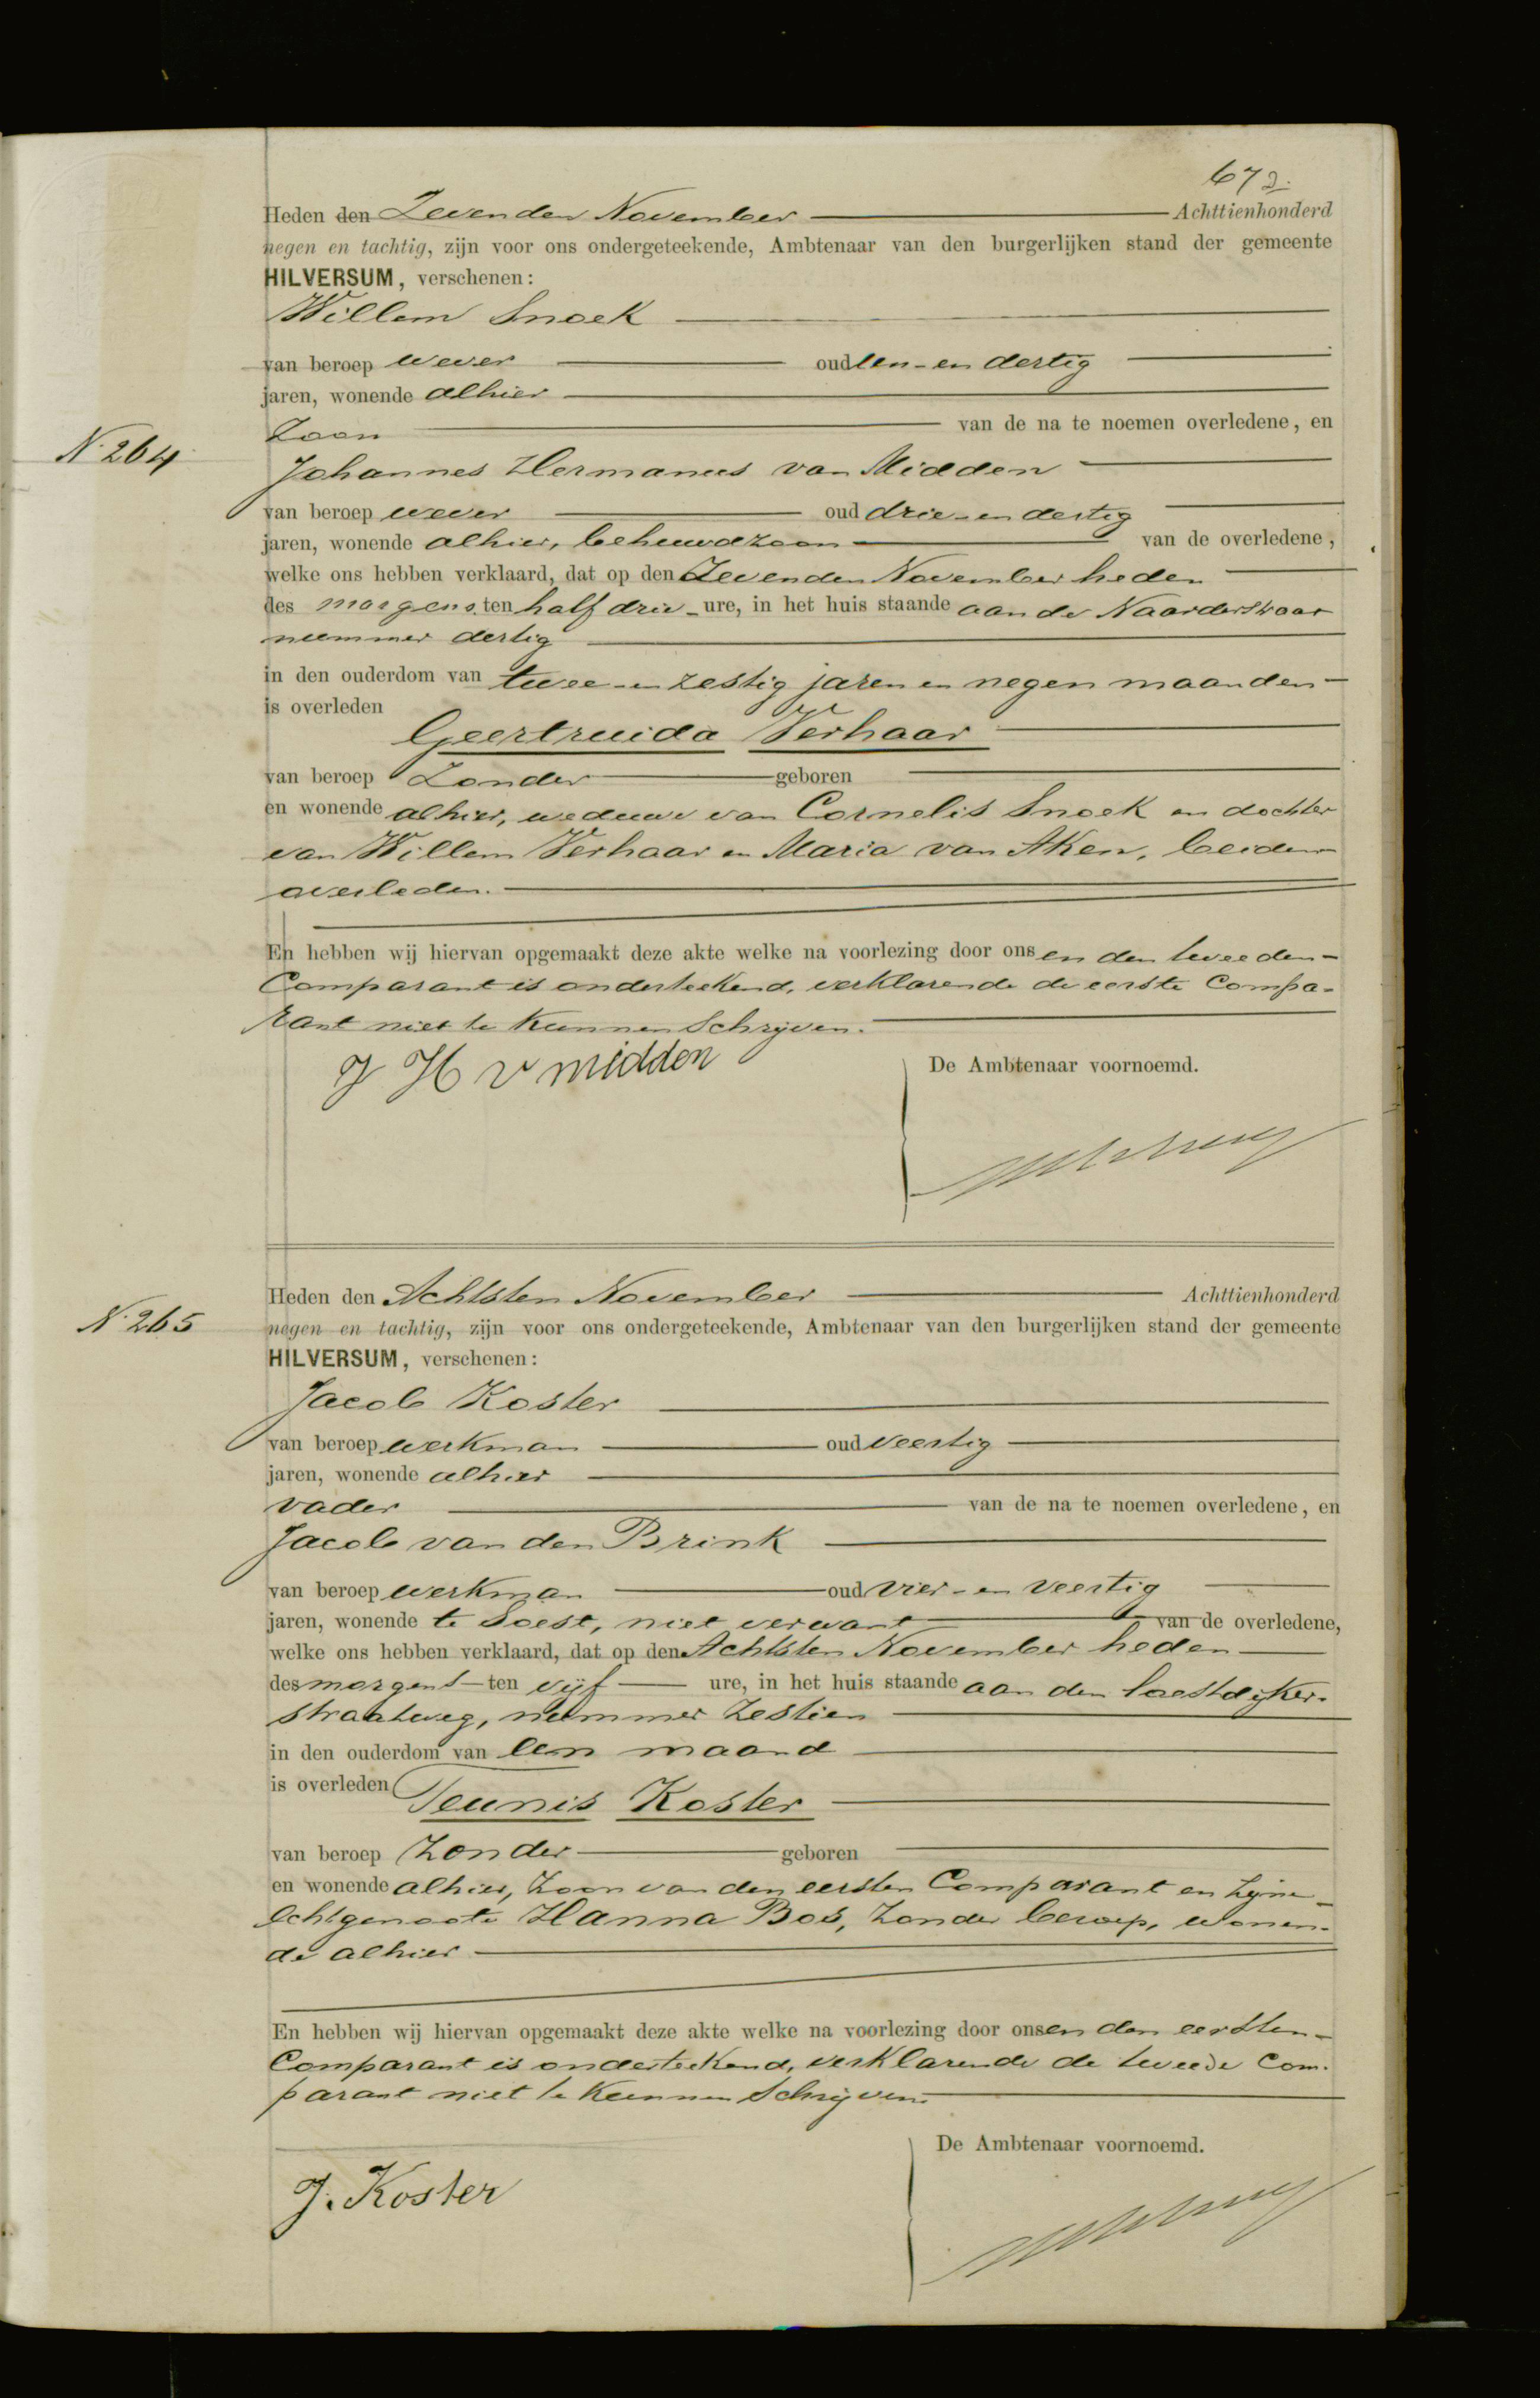 673.
Heden den Zevenden November Achttienhonderd
negen en tachtig, zijn voor ons ondergeteekende, Ambtenaar van den burgerlijken stand der gemeente
HILVERSUM, verschenen:
Willem Snoek
van beroep wever oud een-en dertig
jaren, wonende alhier
Zoon van de na te noemen overledene, en
N. 264
Johannes Hermanus van Midden
van beroep wever oud drie-en dertig
jaren, wonende alhier, behuwdzoon van de overledene,
welke ons hebben verklaard, dat op den Zevenden November heden
des morgens ten half drie ure, in het huis staande aan de Naarderstraat
nummer dertig
in den ouderdom van twee en zestig jaren en negen maanden
is overleden
Geertruida Verhaar
van beroep Zonder geboren
en wonende alhier, weduwe van Cornelis Snoek en dochter
van Willem Verhaar en Maria van Aken, beiden
overleden.
En hebben wij hiervan opgemaakt deze akte welke na voorlezing door ons en den tweeden
Comparant is onderteekend, verklarende de eerste Compa-
rant niet te kunnen Schrijven.
J H v midden
De Ambtenaar voornoemd.
Heden den Achtsten November Achttienhonderd
N. 265
negen en tachtig, zijn voor ons ondergeteekende, Ambtenaar van den burgerlijken stand der gemeente
HILVERSUM, verschenen:
Jacob Koster
van beroep werkman oud veertig
jaren, wonende alhier
vader van de na te noemen overledene, en
Jacob van den Brink
van beroep werkman oud vier-en veertig
jaren, wonende te Soest, niet verwant van de overledene,
welke ons hebben verklaard, dat op den Achtsten November heden
des morgens ten vijf ure, in het huis staande aan den Soestdijker-
straatweg, nummer Zestien
in den ouderdom van een maand
is overleden
Teunis Koster
van beroep Zonder geboren
en wonende alhier, Zoon van den eersten Comparant en Zijne
Echtgenoote Hanna Bos, Zonder beroep, wonen-
de alhier
En hebben wij hiervan opgemaakt deze akte welke na voorlezing door ons en den eersten
Comparant is onderteekend, verklarende de tweede Com-
parant niet te kunnen Schrijven.
De Ambtenaar voornoemd.
J. Koster